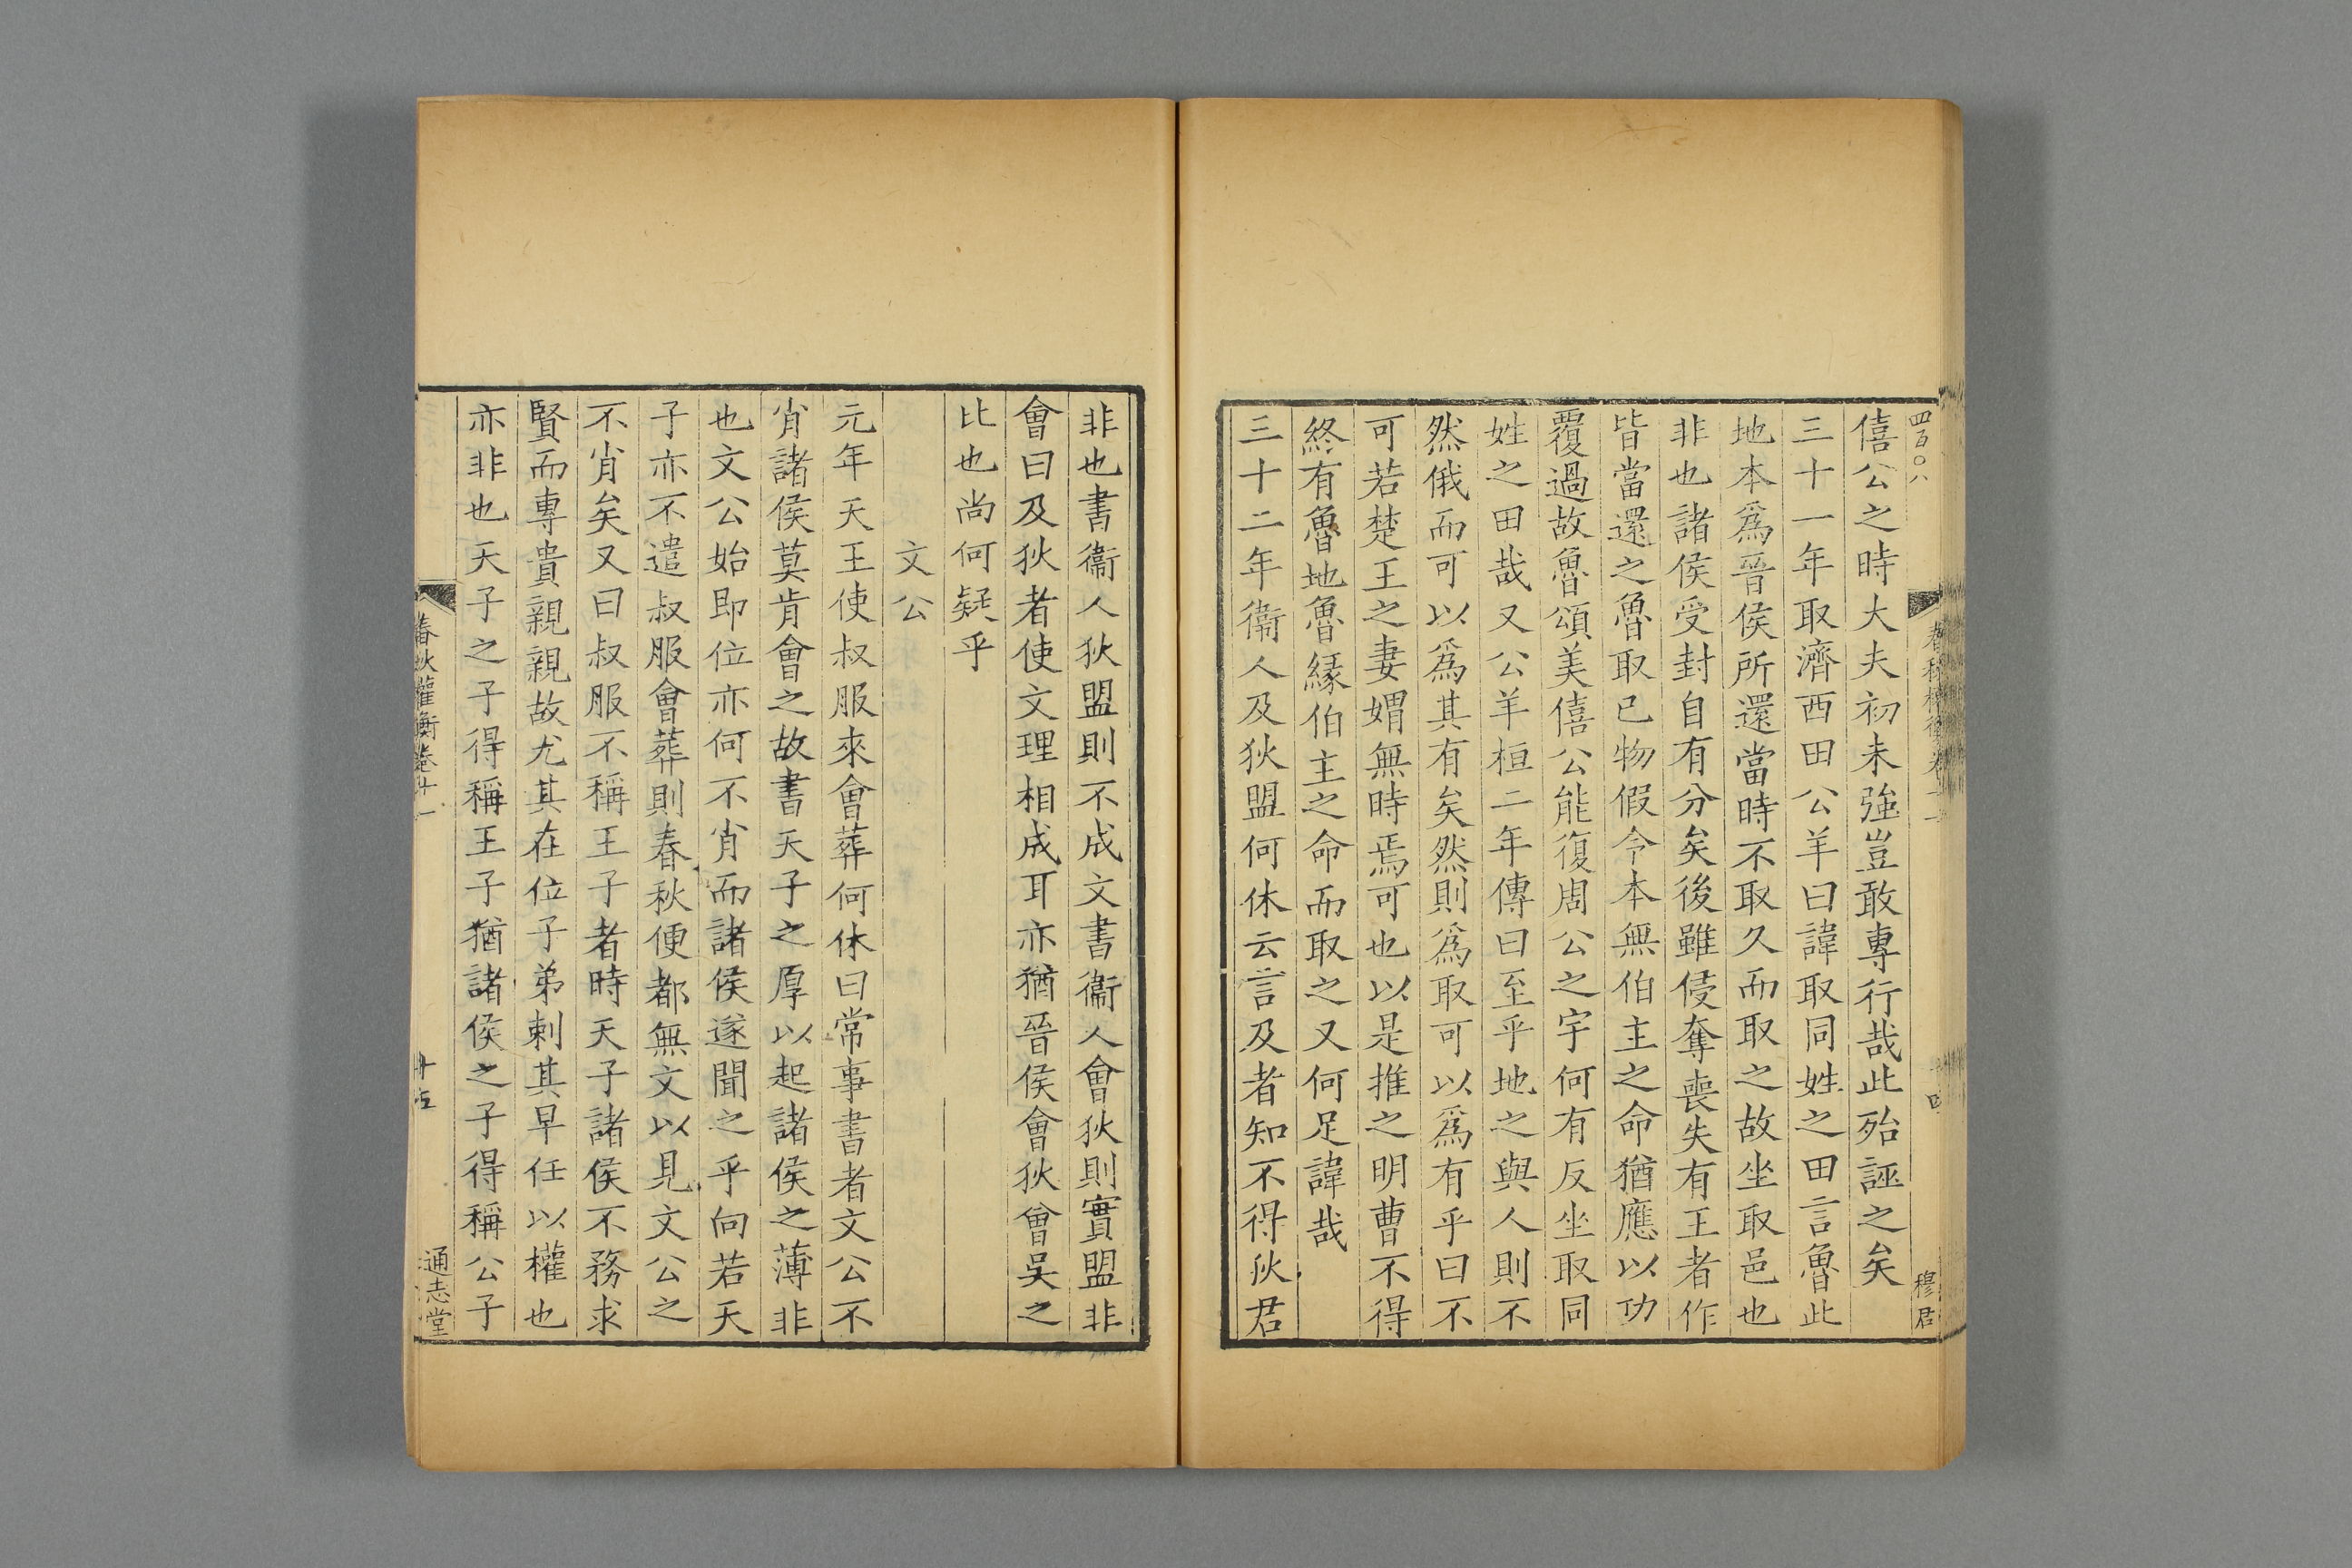 四百〇八
穆君
僖公之時大夫初未強豈敢專行哉此殆誣之矣
三十一年取濟西田公羊曰諱取同姓之田言魯此
地本爲晉侯所還當時不取久而取之故坐取邑也
非也諸侯受封自有分矣後雖侵奪喪失有王者作
皆當還之魯取已物假令本無伯主之命猶應以功
覆過故魯頌美僖公能復周公之宇何有反坐取同
姓之田哉又公羊桓二年傳曰至乎地之與人則不
然俄而可以爲其有矣然則爲取可以爲有乎曰不
可若楚王之妻媦無時焉可也以是推之明曹不得
終有魯地魯緣伯主之命而取之又何足諱哉
三十二年衞人及狄盟何休云言及者知不得狄君
非也書衞人狄盟則不成文書衞人會狄則實盟非
會曰及狄者使文理相成耳亦猶晉侯會狄會吳之
比也尚何疑乎
文公
元年天王使叔服來會葬何休曰常事書者文公不
肖諸侯莫肯會之故書天子之厚以起諸侯之薄非
也文公始即位亦何不肖而諸侯遂聞之乎向若天
子亦不遣叔服會葬則春秋便都無文以見文公之
不肖矣又曰叔服不稱王子者時天子諸侯不務求
賢而專貴親親故尤其在位子弟刺其早任以權也
亦非也天子之子得稱王子猶諸侯之子得稱公子
春秋權衡卷十一
通志堂